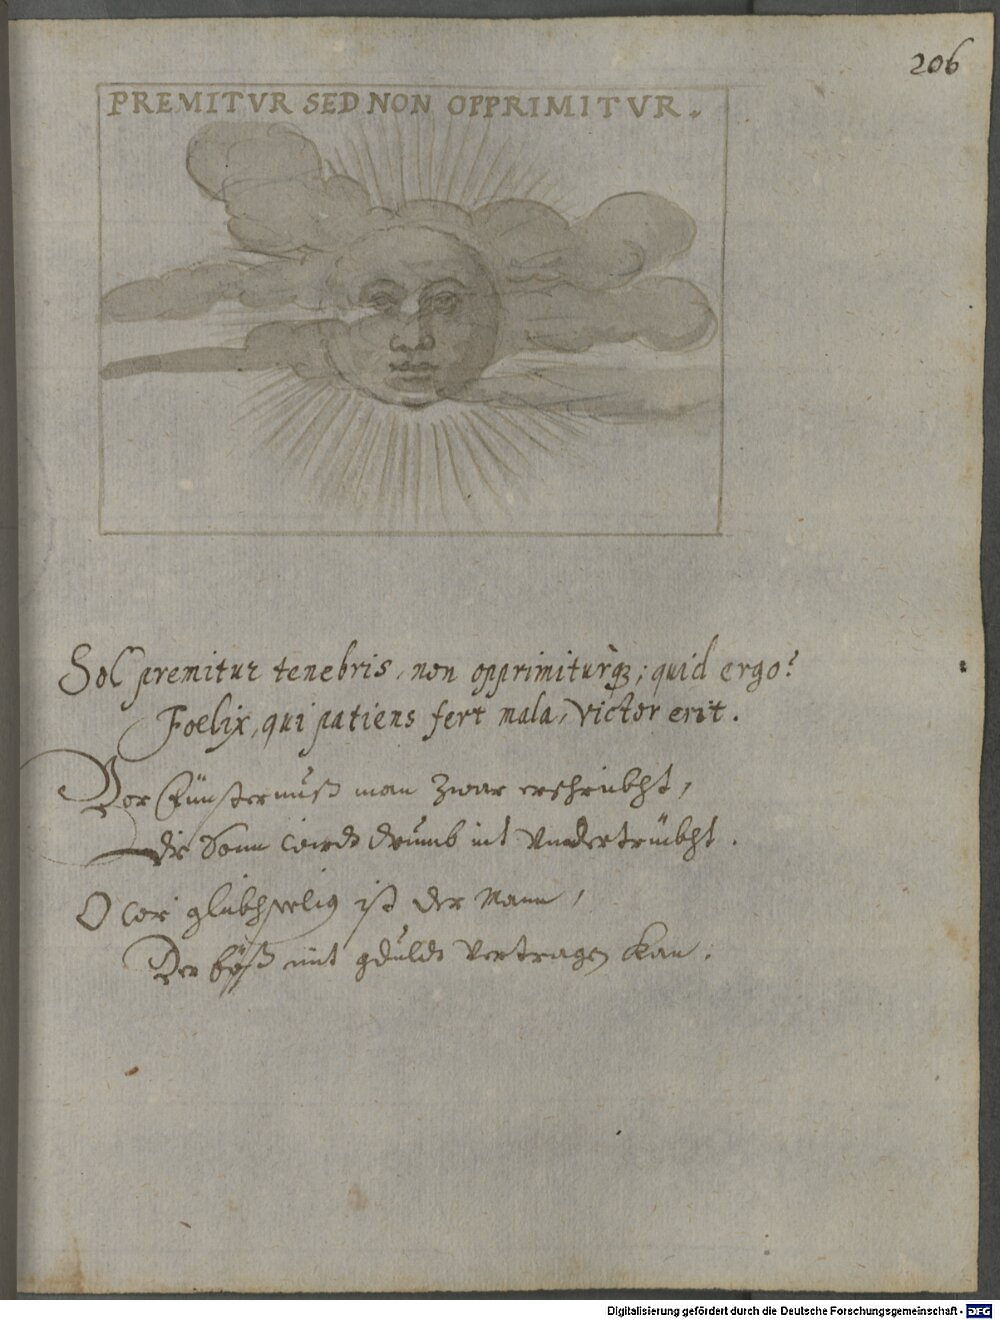 206
PREMITVR SED NON OPPRIMITVR.
Sol premitur tenebris, non opprimiturq3; quid ergo?
Foelix, qui patiens fert mala, victor erit.
Vor Fünsternuß man Zwar erschrickht,
die Sonn wirdt drumb nit Vndertruckht.
O wie glückhselig ist der Mann,
Der böß mit gduldt Vertragen kan.
Digitalisierung gefördert durch die Deutsche Forschungsgemeinschaft - DFG